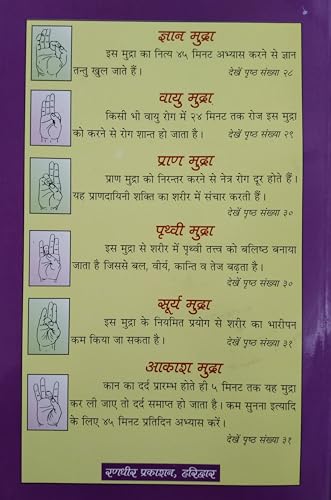 ज्ञान मुद्रा
इस मुद्रा का नित्य ४५ मिनट अभ्यास करने से ज्ञान
तन्तु खुल जाते हैं।
देखें पृष्ठ संख्या २८
वायु मुद्रा
किसी भी वायु रोग में २४ मिनट तक रोज इस मुद्रा
को करने से रोग शान्त हो जाता है।
देखें पृष्ठ संख्या २९
प्राण मुद्रा
प्राण मुद्रा को निरन्तर करने से नेत्र रोग दूर होते हैं।
यह प्राणदायिनी शक्ति का शरीर में संचार करती हैं।
देखें पृष्ठ संख्या ३०
पृथ्वी मुद्रा
इस मुद्रा से शरीर में पृथ्वी तत्त्व को बलिष्ठ बनाया
जाता है जिससे बल, वीर्य, कान्ति व तेज बढ़ता है।
देखें पृष्ठ संख्या ३०
सूर्य मुद्रा
इस मुद्रा के नियमित प्रयोग से शरीर का भारीपन
कम किया जा सकता है।
देखें पृष्ठ संख्या ३१
आकाश मुद्रा
कान का दर्द प्रारम्भ होते ही ५ मिनट तक यह मुद्रा
कर ली जाए तो दर्द समाप्त हो जाता है। कम सुनना इत्यादि
के लिए ४५ मिनट प्रतिदिन अभ्यास करें।
देखें पृष्ठ संख्या ३१
रणधीर प्रकाशन, हरिद्वार